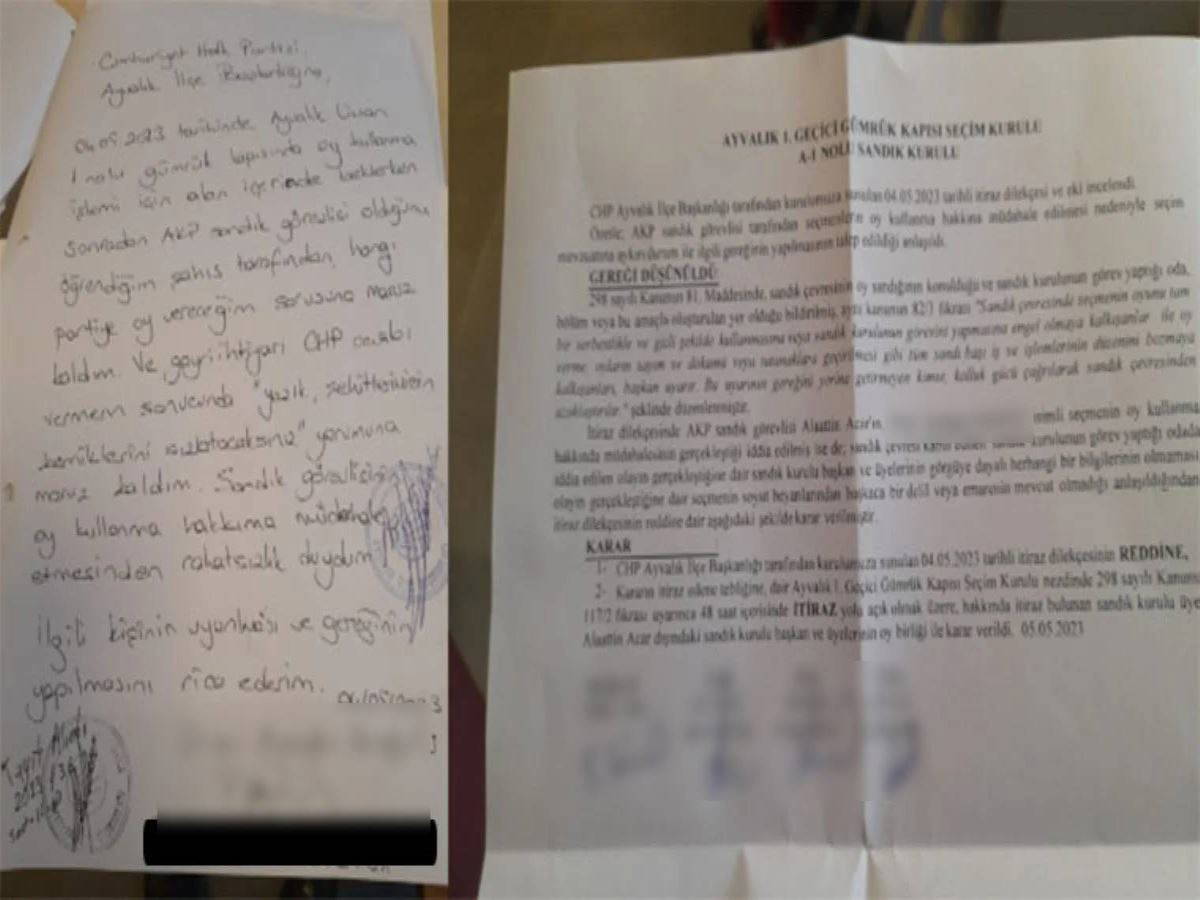 Cumhuriyet Halk Partisi
Ayvalık İlçe Başkanlığına,
04.05.2023 tarihinde, Ayvalık Liman
1 nolu gümrük kapısında oy kullanma
işlemi için alan içerisinde beklerken
sonradan AKP sandık görevlisi olduğunu
öğrendiğim şahıs tarafından, hangi
partiye oy vereceğim sorusuna maruz
kaldım. Ve gayriihtiyari CHP cevabı
vermem sonucunda "yazık,
kemiklerini sızlatacaksınız" yorumuna
maruz kaldım. Sandık görevlisinin
oy kullanma hakkıma müdahale
etmesinden rahatsızlık duydum.
İlgili kişinin uyarılması ve gereğinin
yapılmasını rica ederim.
AYVALIK 1. GEÇİCİ GÜMRÜK KAPISI SEÇİM KURULU
A-1 NOLU SANDIK KURULU
CHP Ayvalık İlçe Başkanlığı tarafından kurulumuza sunulan 04.05.2023 tarihli itiraz dilekçesi ve eki incelendi.
Özetle; AKP sandık görevlisi tarafından seçmenlerin oy kullanma hakkına müdahale edilmesi nedeniyle seçim
mevzuatına aykırı durum ile ilgili gereğinin yapılmasının talep edildiği anlaşıldı.
GEREĞİ DÜŞÜNÜLDÜ
298 sayılı Kanunun 81. Maddesinde, sandık çevresinin oy sandığının konulduğu ve sandık kurulunun görev yaptığı oda,
bölüm veya bu amaçla oluşturulan yer olduğu bildirilmiş, aynı kanunun 82/1 fıkrası "Sandık çevresinde seçmenin oyunu tam
bir serbestlikle ve gizli şekilde kullanmasına veya sandık kurulunun görevini yapmasına engel olmaya kalkışanlar ile oy
verme, oyların sayım ve dökümü veya tutanaklara geçirilmesi gibi tüm sandık başı iş ve işlemlerinin düzenini bozmaya
kalkışanları, başkan uyarır. Bu uyarının gereğini yerine getirmeyen kimse, kolluk gücü çağrılarak sandık çevresinden
uzaklaştırılır." şeklinde düzenlenmiştir.
İtiraz dilekçesinde AKP sandık görevlisi Alaattin Azar'ın, isimli seçmenin oy kullanma
hakkında müdahalesinin gerçekleştiği iddia edilmiş ise de; sandık çevresi kurulunun görev yaptığı odada
iddia edilen olayın gerçekleştiğine dair sandık kurulu başkan ve üyelerinin görgüye dayalı herhangi bir bilgilerinin olmaması
olayın gerçekleştiğine dair seçmenin soyut beyanlarından başkaca bir delil veya emarenin mevcut olmadığı anlaşıldığından
itiraz dilekçesinin reddine dair aşağıdaki şekilde karar verilmiştir.
KARAR
1- CHP Ayvalık İlçe Başkanlığı tarafından kurulumuza sunulan 04.05.2023 tarihli itiraz dilekçesinin REDDİNE,
2- Kararın itiraz edene tebliğine, dair Ayvalık 1. Geçici Gümrük Kapısı Seçim Kurulu nezdinde 298 sayılı Kanunun
117/2 fıkrası uyarınca 48 saat içerisinde İTİRAZ yolu açık olmak üzere, hakkında itiraz bulunan sandık kurulu üye
Alaattin Azar dışındaki sandık kurulu başkan ve üyelerinin oy birliği ile karar verildi. 05.05.2023